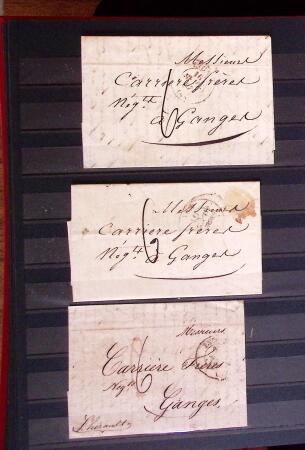 Messieurs
Carriere frères
Négts
6
à Ganges
Messieurs
Carriere frères
Négts
à Ganges
Messieurs
Carrière Frères
Négts
6
Ganges
L'herault